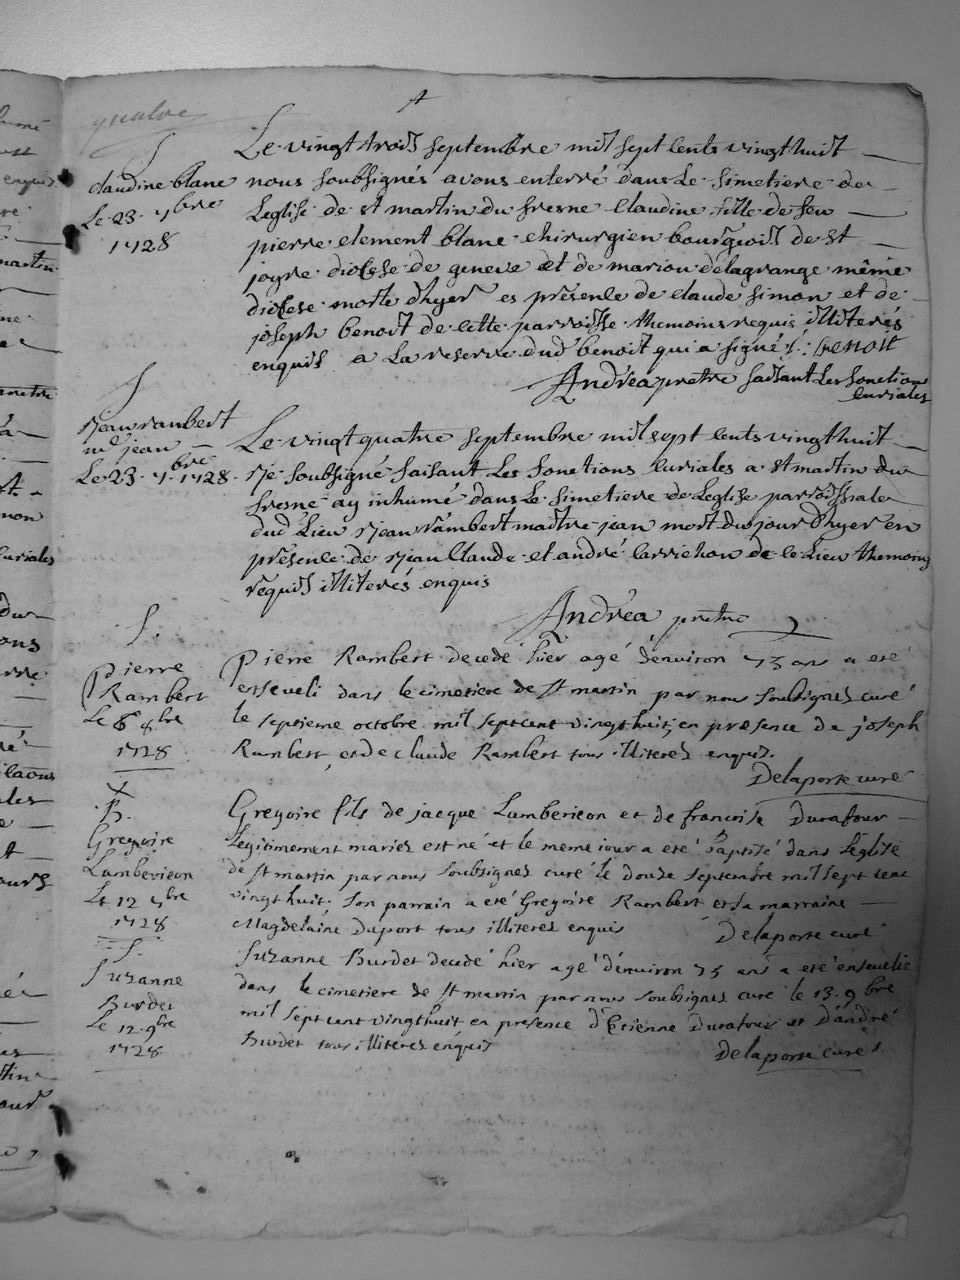 quatre
S
claudine blanc
Le 23 7bre
1728
Le vingt trois septembre mil sept cents vingt huit
nous soubsignés avons enterré dans Le simetiere de
Leglise de st martin du fresne Claudine fille de feu
pierre clement blanc chirurgien bourgeois de st
joyre diocese de geneve et de marion delagrange même
diocese morte d'hyer es présence de claude simon et de
joseph benoit de cette parroisse themoins requis illiterés
enquis a La reserve dud benoit qui a signé /: benoit
Andréa pretre faisant Les fonctions
curiales
S
Jean rambert
me jean
Le 23 7bre 1728
Le vingt quatre septembre mil sept cents vingt huit
Je soubsigné faisant Les fonctions curiales a st martin du
fresne ay inhumé dans Le simetiere de Leglise parroissiale
dud Lieu Jean rambert maitre jean mort du jour d'hyer en
présence de Jean Claude et andré carrichon de ce Lieu themoins
requis illiterés enquis
Andréa pretre
S.
Pierre
Rambert
Le 6 8bre
1728
Pierre Rambert decedé hier agé d'environ 75 ans a eté
enseveli dans le cimetiere de St martin par nous soubsignez curé
le septieme octobre mil sept cent vingt huit, en præsence de joseph
Rambert, et de claude Rambert tous illiterez enquis.
Delaporte curé
B.
Gregoire
Lamberieon
Le 12 7bre
1728
Gregoire fils de jacque Lamberieon et de francoise Durafour
Legitimement mariez est né et le meme jour a eté baptisé dans l'église
de St martin par nous soubsignez curé le douze septembre mil sept cent
vingt huit. Son parrain a eté Gregoire Rambert et sa marraine
Magdelaine Duport tous illiterez enquis
Delaporte curé
S.
Suzanne
Burdet
Le 12 9bre
1728
Suzanne Burdet decedé hier agé d'environ 75 ans a eté ensevelie
dans le cimetiere de St martin par nous soubsignez curé le 13 9bre
mil sept cent vingt huit en presence d'Etienne Durafour et d'andré
Burdet tous illiterez enquis
Delaporte curé